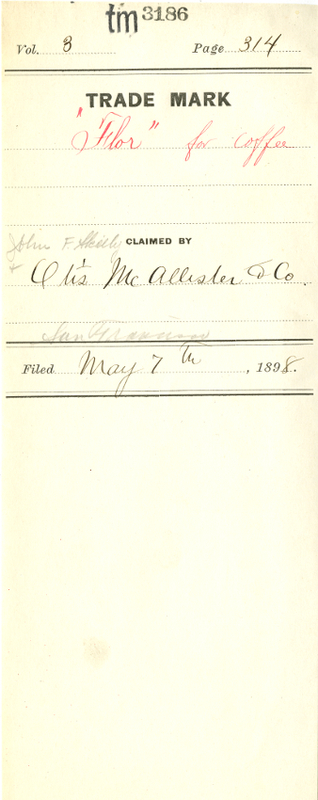 tm 3186
Vol. 3 Page 314
TRADE MARK
"Flor" for coffee
John F
CLAIMED BY
& Otis McAllister & Co.
San Francisco
Filed May 7th, 1898.